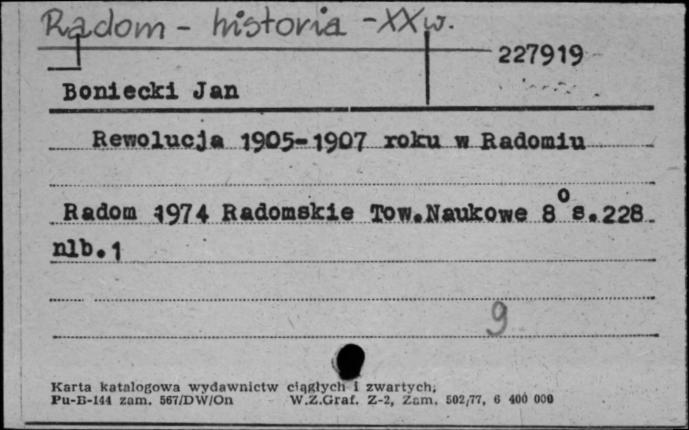 Radom - historia - XX w.
227919
Boniecki Jan
Rewolucja 1905-1907 roku w Radomiu
Radom 1974 Radomskie Tow.Naukowe 8° s.228
nlb.1
9
Karta katalogowa wydawnictw ciągłych i zwartych,
Pu-B-144 zam. 567/DW/On W.Z.Graf. Z-2, Zam. 502/77, 6 400 000